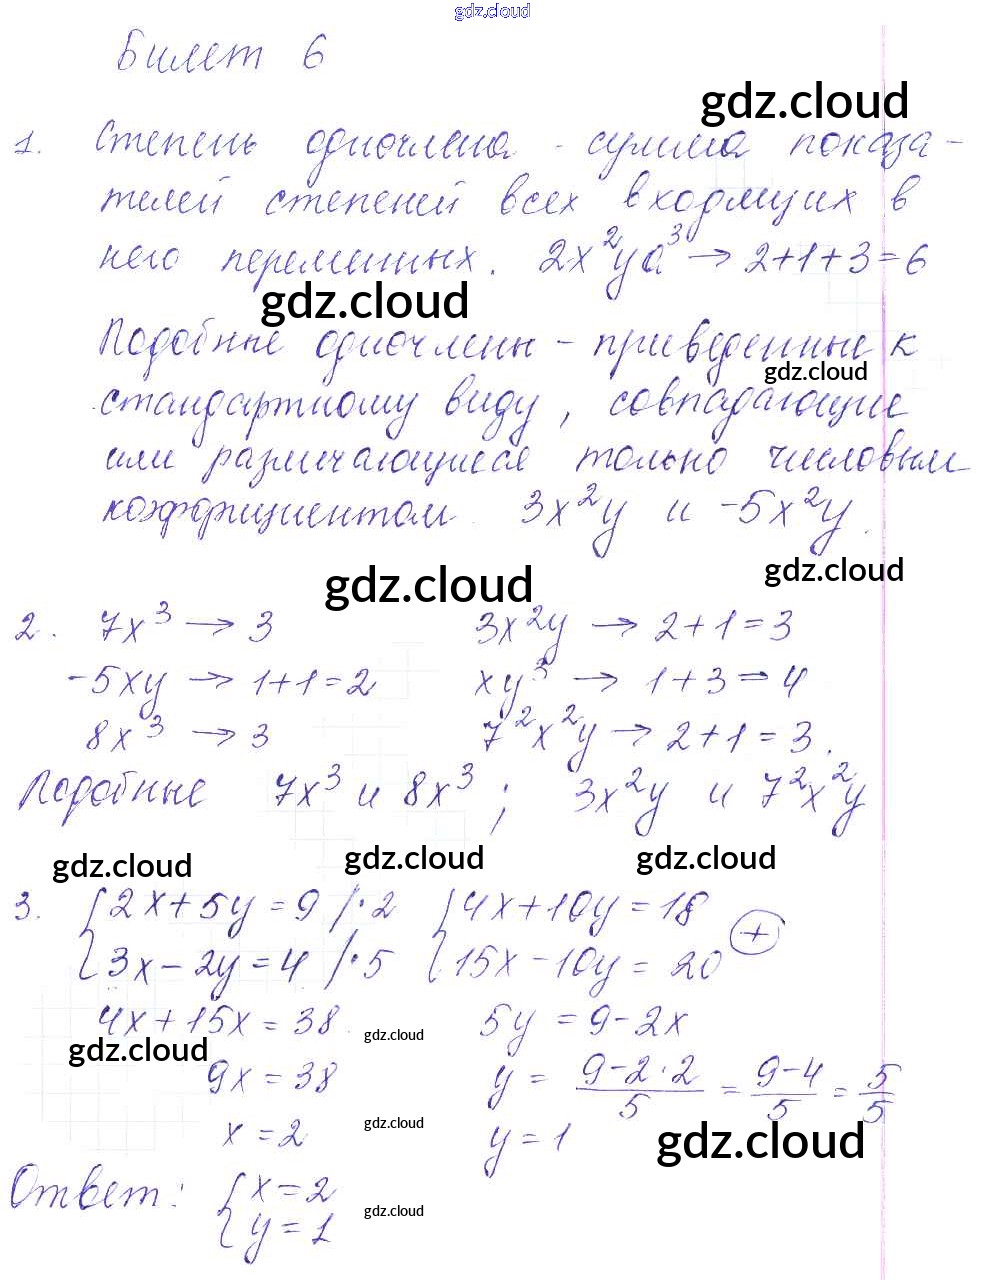 gdz.cloud
Билет 6
gdz.cloud
1. Степень одночлена - сумма показа-
телей степеней всех входящих в
него переменных. 2x²ya³ → 2+1+3=6
gdz.cloud
Подобные одночлены - приведенные к
gdz.cloud
стандартному виду, совпадающие
или различающиеся только числовым
коэффициентом. 3x²y и -5x²y.
gdz.cloud gdz.cloud
2. 7x³ → 3 3x²y → 2+1=3
-5xy → 1+1=2 xy³ → 1+3=4
8x³ → 3 7²x²y → 2+1=3.
Подобные 7x³ и 8x³ ; 3x²y и 7²x²y
gdz.cloud gdz.cloud gdz.cloud
3. {2x+5y=9 /·2 {4x+10y=18
{3x-2y=4 /·5 {15x-10y=20 +
4x+15x=38 5y=9-2x
gdz.cloud gdz.cloud
9x=38 y = 9-2·2/5 = 9-4/5 = 5/5
x=2 y=1
gdz.cloud gdz.cloud
Ответ: {x=2
{y=1
gdz.cloud